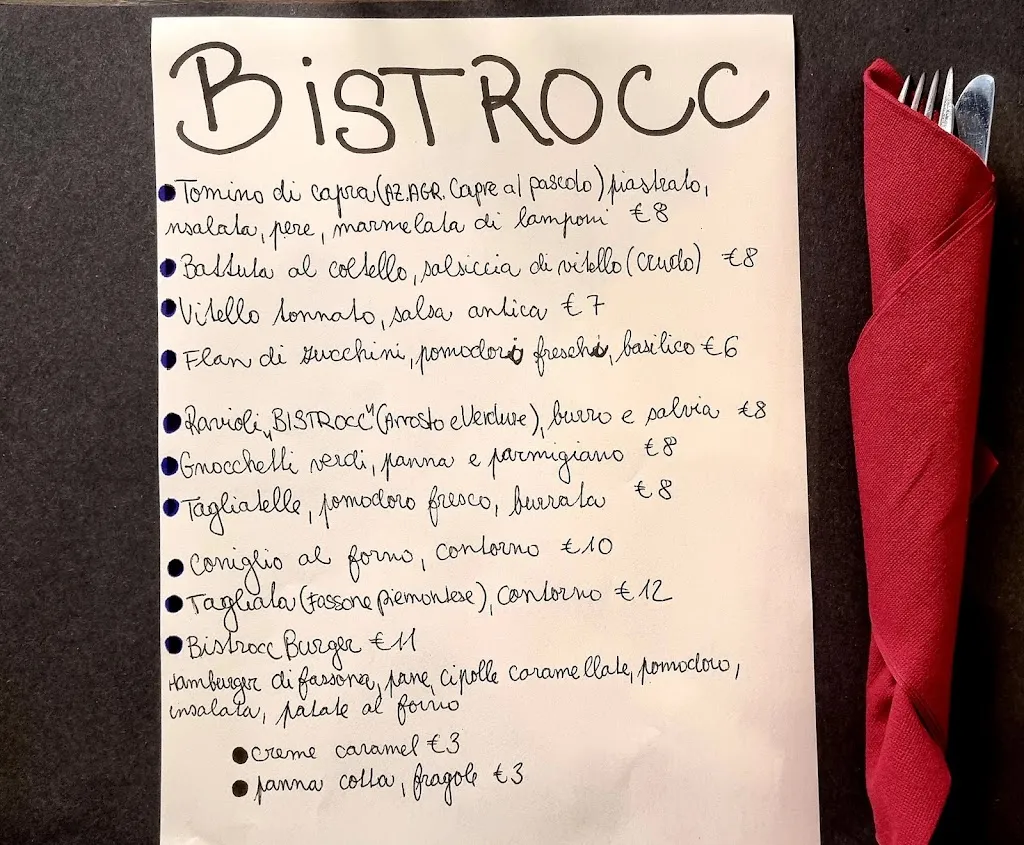 BiSTROCC
• Tomino di capra (AZ.AGR. Capre al pascolo) piastrato,
insalata, pere, marmellata di lamponi €8
• Battuta al coltello, salsiccia di vitello (crudo) €8
• Vitello tonnato, salsa antica €7
• Flan di zucchini, pomodori freschi, basilico €6
• Ravioli „BISTROCC" (Arrosto e Verdure), burro e salvia €8
• Gnocchetti verdi, panna e parmigiano €8
• Tagliatelle, pomodoro fresco, burrata €8
• Coniglio al forno, contorno €10
• Tagliata (Fassone piemontese), contorno €12
• Bistrocc Burger €11
Hamburger di fassona, pane, cipolle caramellate, pomodoro,
insalata, patate al forno
• creme caramel €3
• panna cotta, fragole €3